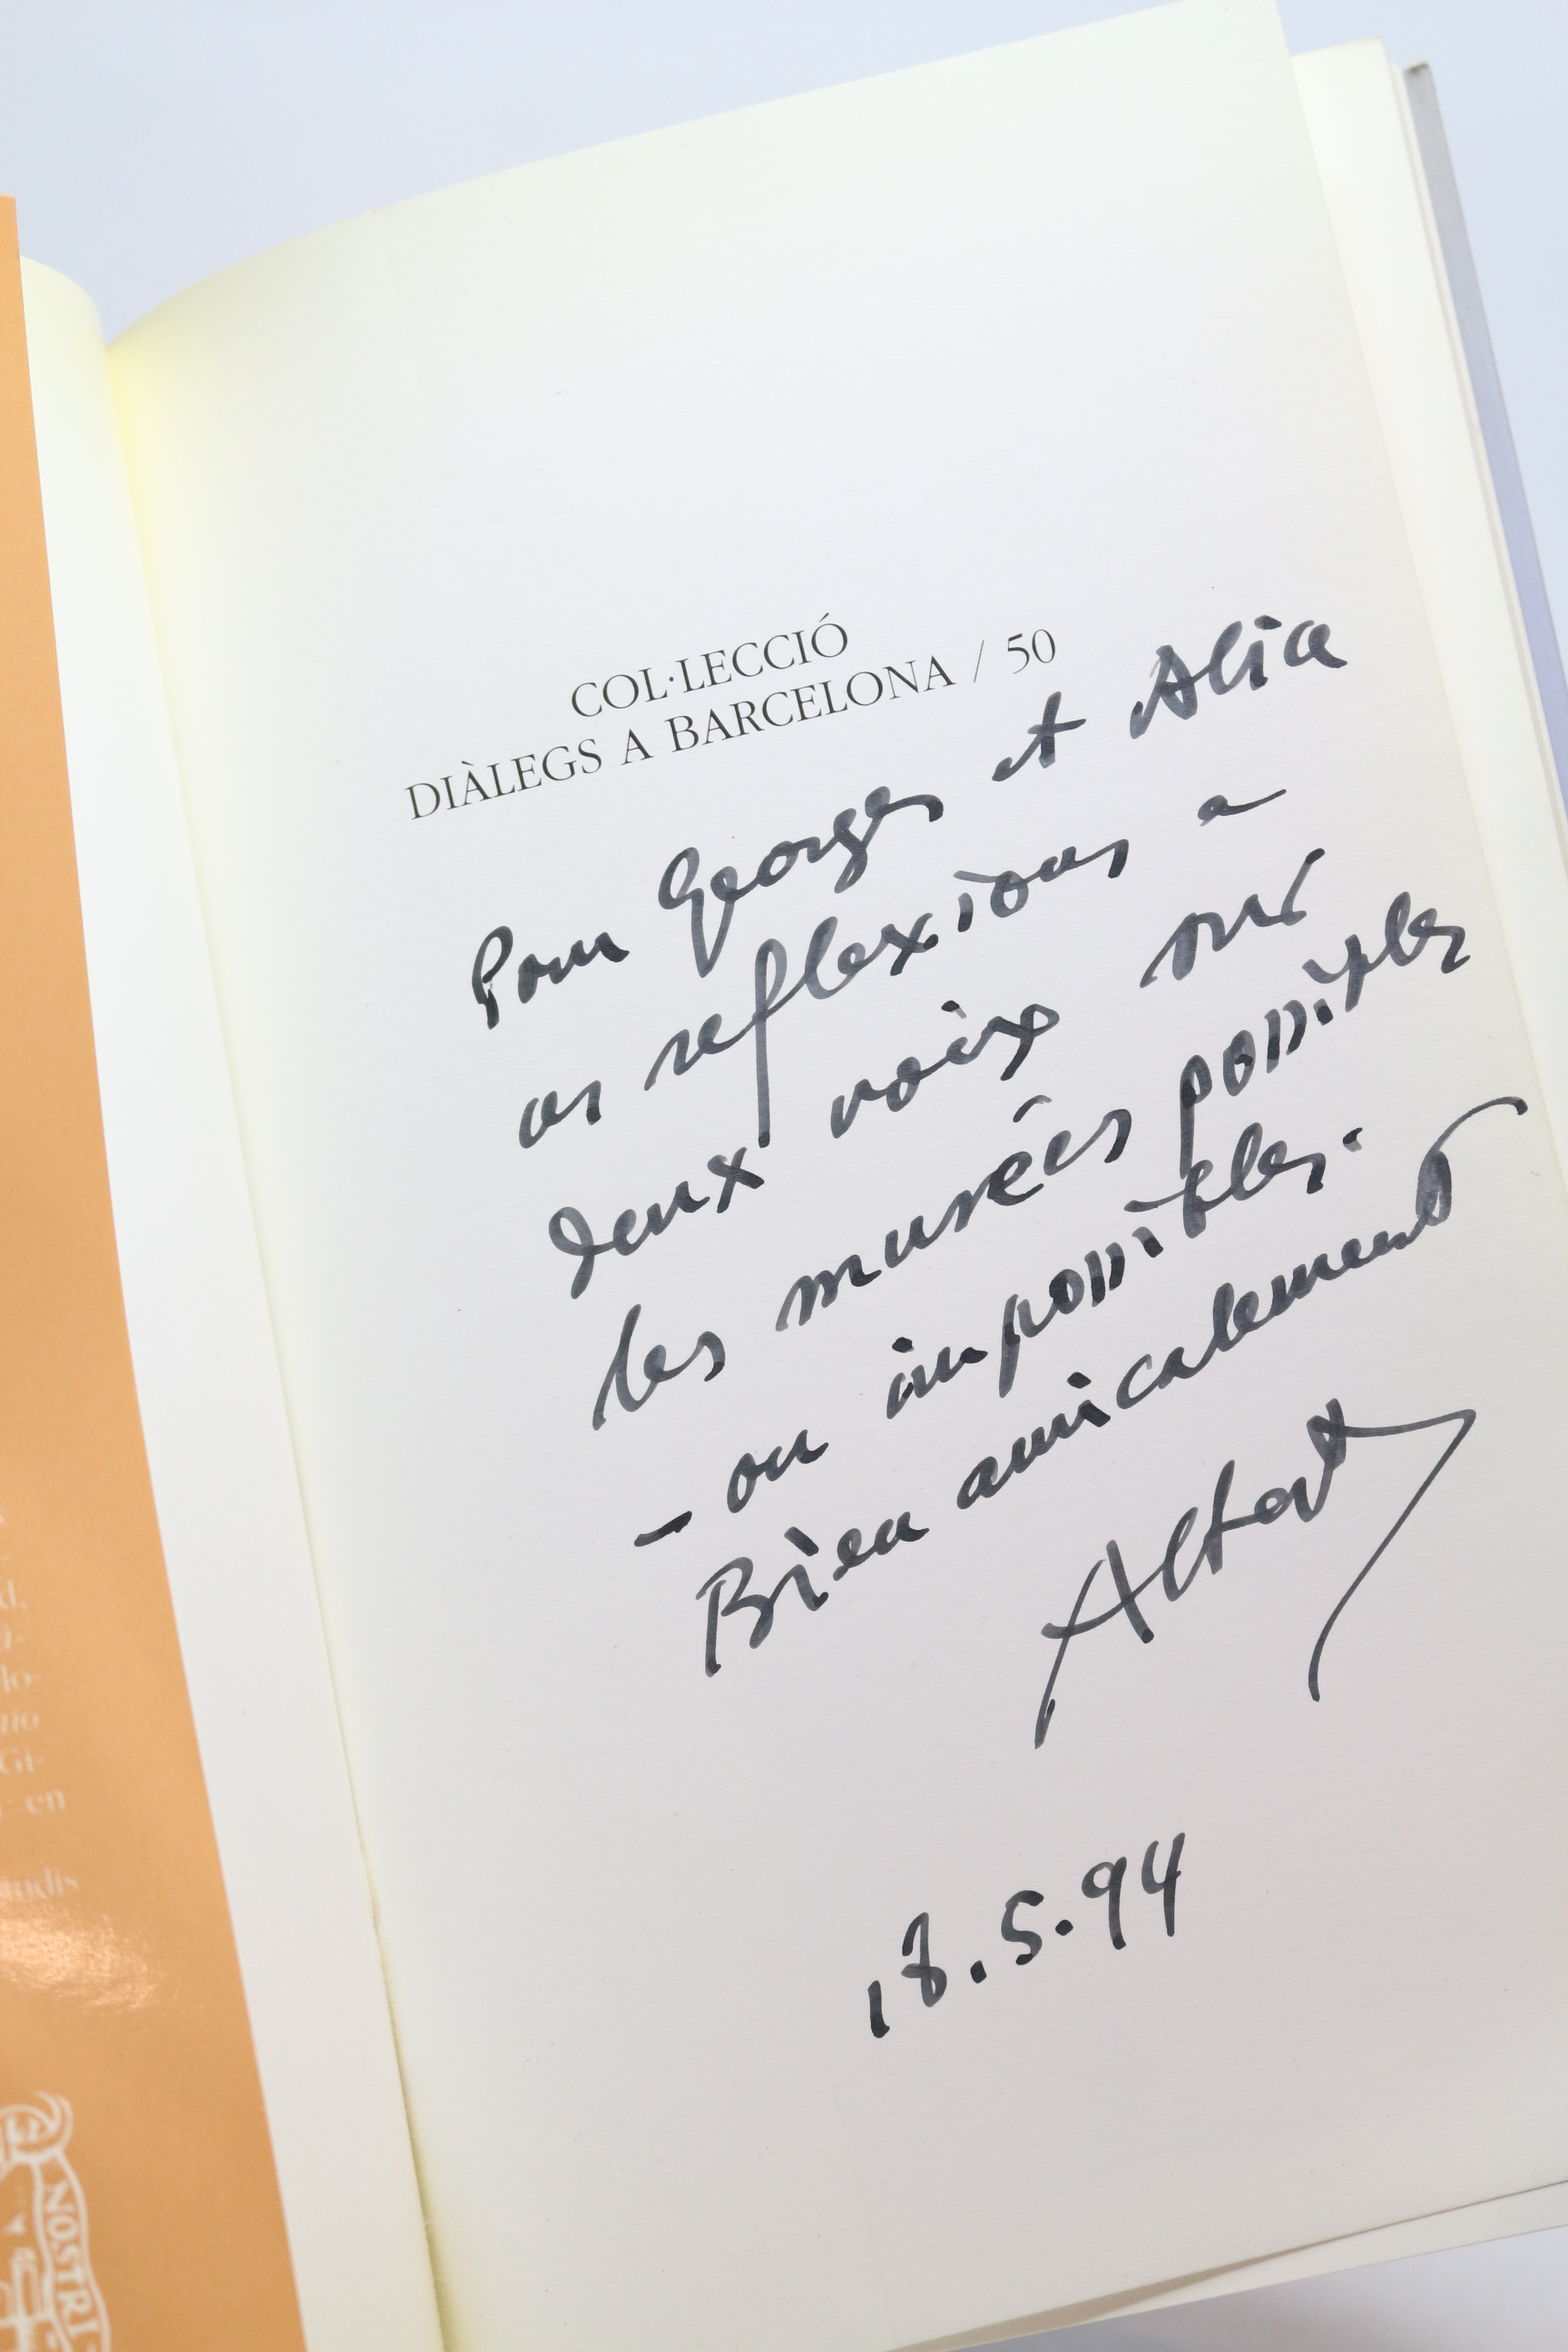 COL·LECCIÓ
DIÀLEGS A BARCELONA / 50
Pour Georges et Alica
ces reflexions a
deux voix sur
les musées possibles
- ou impossibles.
Bien amicalement
Albert
18.5.94
d,
lo-
no
Gi-
en
NOSTRI